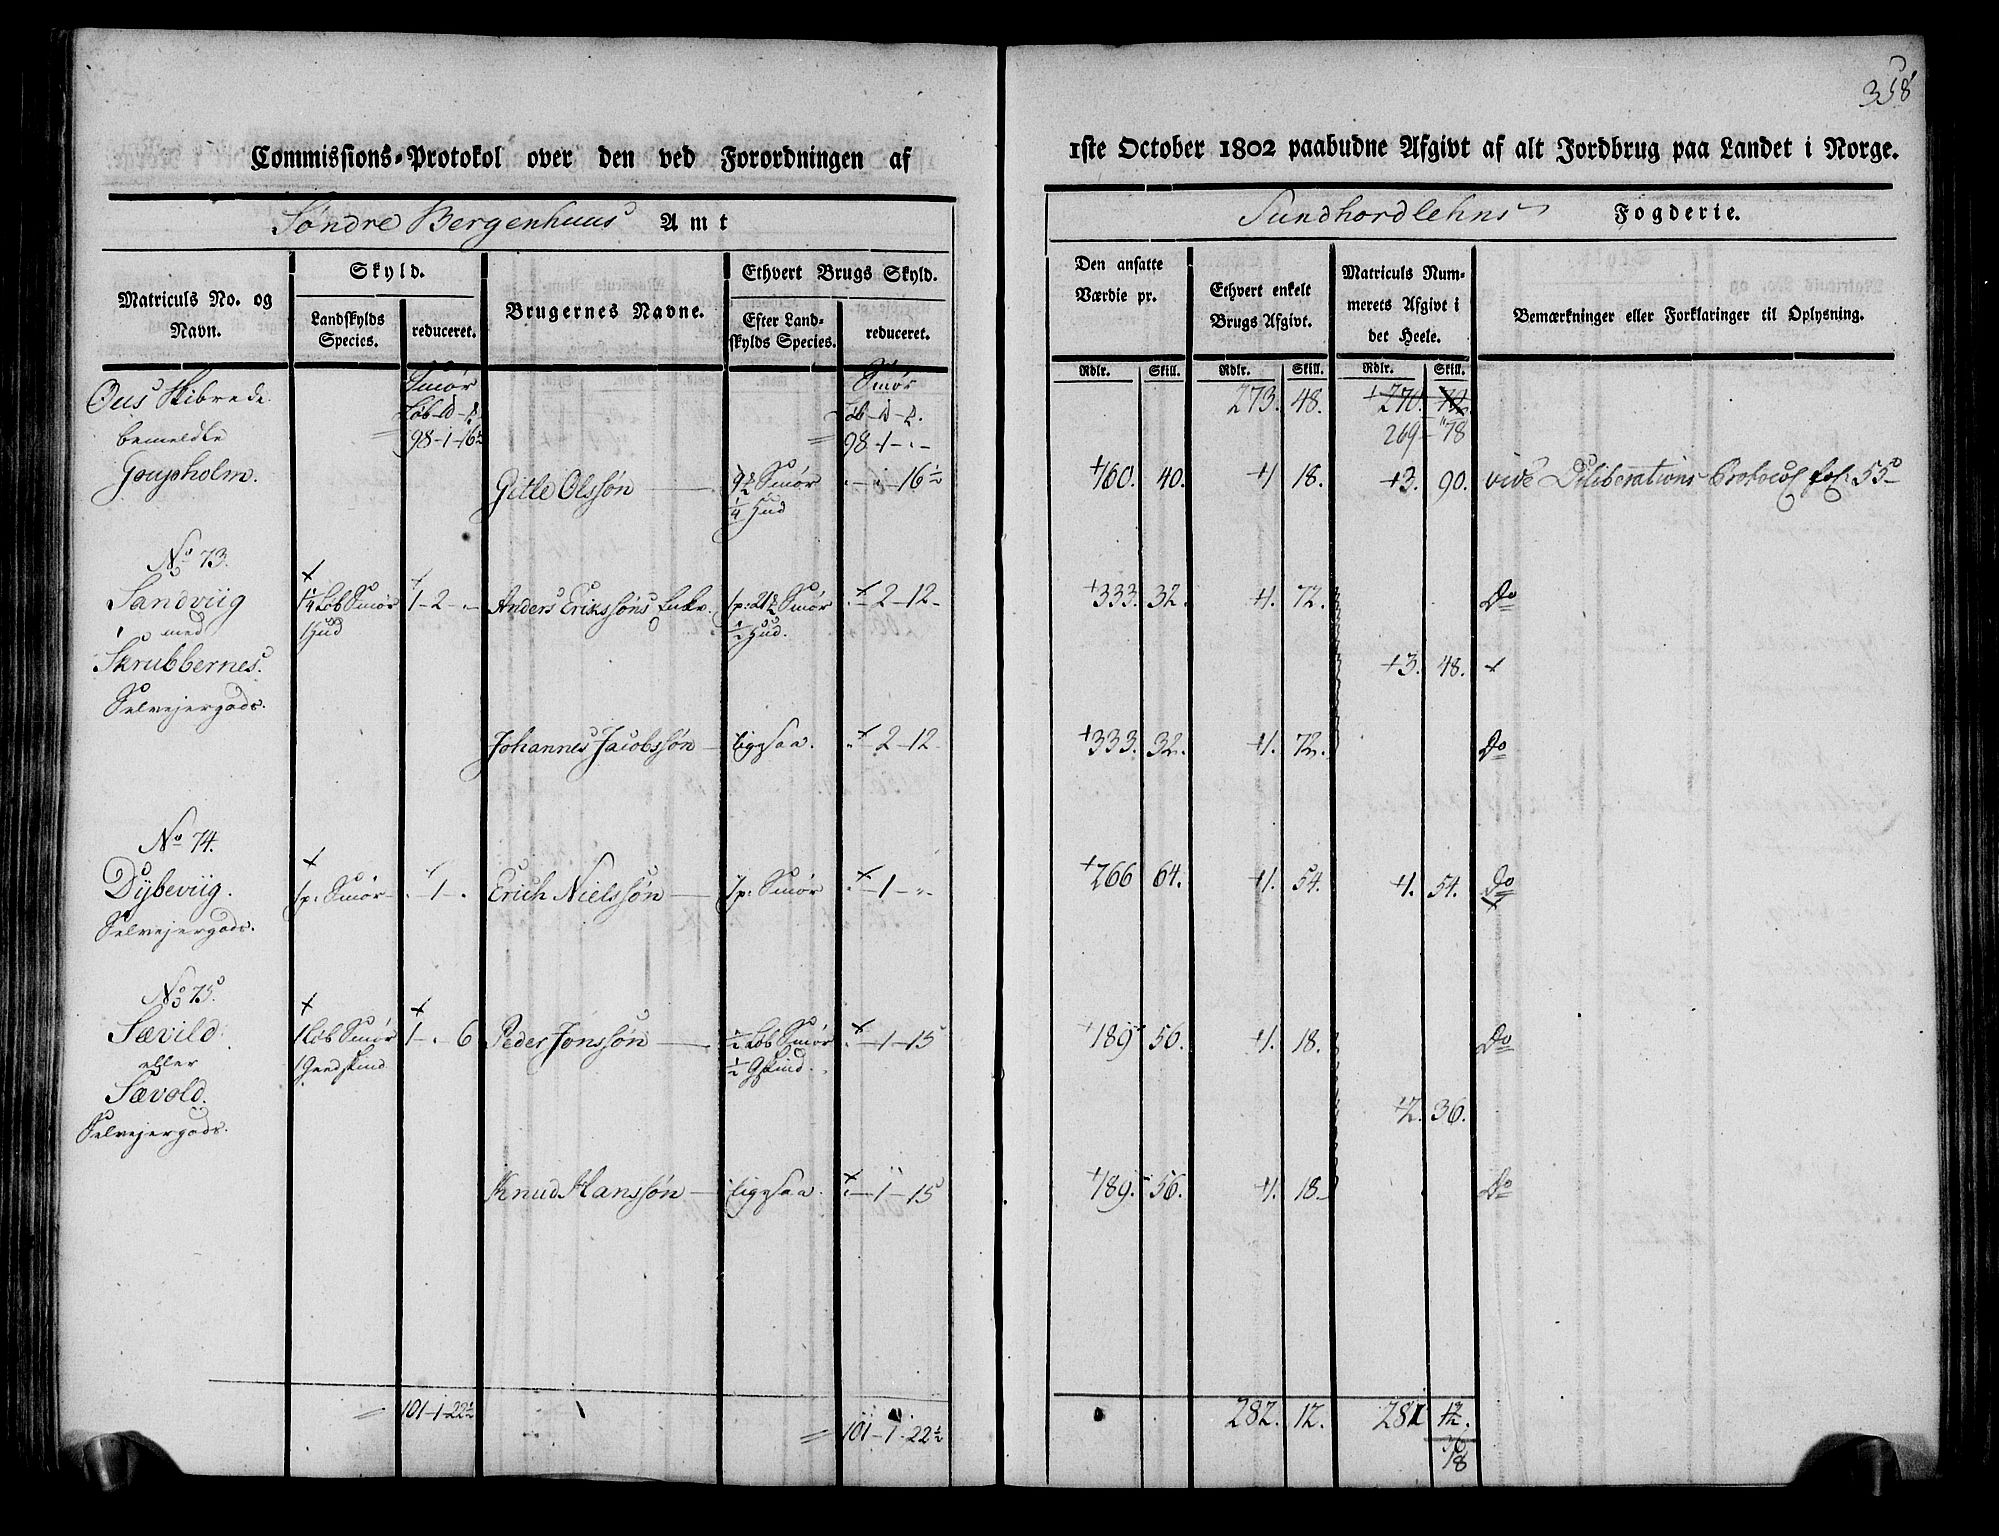 358
Commissions-Protokol over den ved Forordningen af
1ste October 1802 paabudne Afgivt af alt Jordbrug paa Landet i Norge.
Søndre Bergenhuus Amt
Sundhordlehns Fogderie.
Matriculs No. og Navn.
Skyld.
Landskylds Species.
reduceret.
Brugernes Navne.
Ethvert Brugs Skyld.
Efter Landskylds Species.
reduceret.
Den ansatte Værdie pr.
Ethvert enkelt Brugs Afgivt.
Matriculs Nummerets Afgivt i det Heele.
Bemærkninger eller Forklaringer til Oplysning.
Rdlr. Skill. Rdlr. Skill. Rdlr. Skill.
Ous Skibrede Smør Smør
Løb 273. 48. 270.
bemeldte 98-1-16½ 98-1-"- 269-78
Grupholm. Gitle Olsson Smør "-"-16½ +160. 40. +1 18. +3. 90. vide Deliberations Protocol fol. 55
¼ Hud
No 73.
Sandviig 1¼ Løb Smør 1-2-"- Anders Erikssøns Enke. Smør "-2-12- +333. 32. +1. 72. Do
med 1 Hud ½ Hud.
Skrubbernes. +3. 48. +
Selvejergods.
Johannes Jacobssøn ligesaa. "-2-12- +333. 32. +1. 72. Do
No 74.
Dybeviig. 1p: Smør "-1-" Erich Nielssøn 1p: Smør "-1-"- +266 64. +1. 54. +1. 54. Do
Selvejergods.
No 75.
Sævild 1 Løb Smør 1-"-6 Peder Jonssøn ½ Løb Smør "-1-15 +189 56. +1. 18. Do
eller 1 Geedskind ½ Gskind.
Sævold. +2. 36.
Selvejergods.
Knud Hanssøn ligesaa. "-1-15 +189. 56. +1. 18. Do
101-1-22½ 101-1-22½ 282. 12. 281 12.
36
18